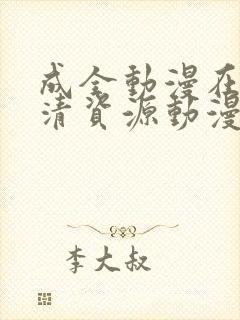 成全動漫在
清資源動漫
李大叔